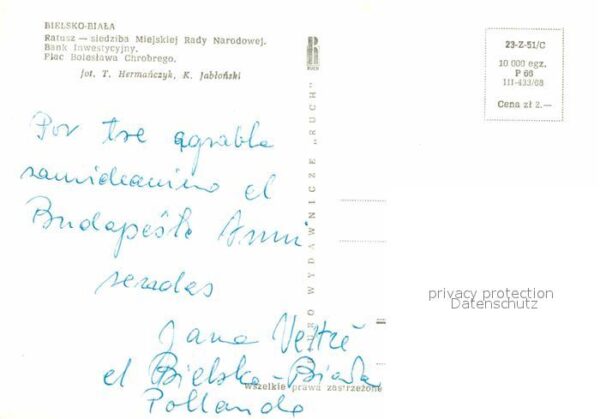 BIELSKO-BIAŁA
Ratusz — siedziba Miejskiej Rady Narodowej.
Bank Inwestycyjny.
Plac Bolesława Chrobrego.
fot. T. Hermańczyk, K. Jabłoński
RUCH
BIURO WYDAWNICZE „RUCH”
23-Z-51/C
10 000 egz.
P 66
III-433/68
Cena zł 2.—
Por tre agrabla
samideanino el
Budapeŝto Anni
sendas
Jana
el Bielsko-Biała
Pollando
wszelkie prawa zastrzeżone
privacy protection
Datenschutz